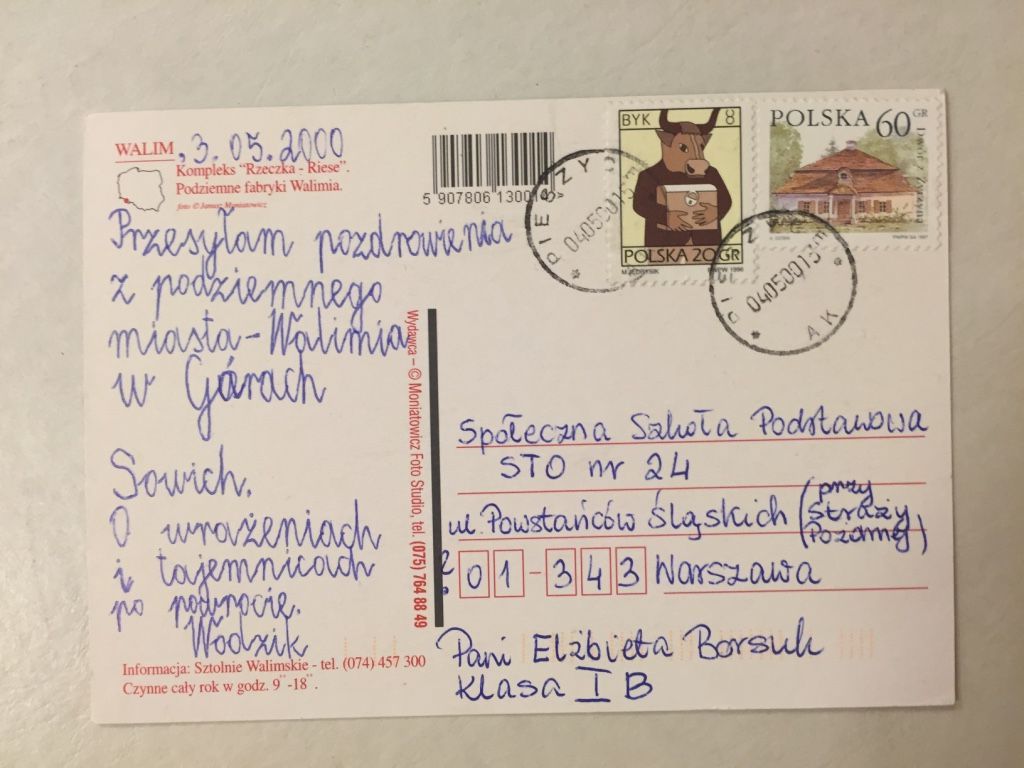 WALIM, 3.05.2000
Kompleks "Rzeczka - Riese".
Podziemne fabryki Walimia.
foto © Janusz Moniatowicz
5 907806 13001
Przesyłam pozdrowienia
z podziemnego
miasta-Walimia
w Górach
Sowich.
O wrażeniach
i tajemnicach
po powrocie.
Wodzik
Informacja: Sztolnie Walimskie - tel. (074) 457 300
Czynne cały rok w godz. 9°°-18°°.
Wydawca – © Moniatowicz Foto Studio, tel. (075) 764 88 49
BYK 8
POLSKA 20 GR
M. JĘDRYSIK PWPW 1996
POLSKA 60 GR
PWPW SA 1997
PIESZYCE
04050013
04050013
Społeczna Szkoła Podstawowa
STO nr 24
ul. Powstańców Śląskich (przy
Straży
Pożarnej)
01-343 Warszawa
Pani Elżbieta Borsuk
Klasa I B